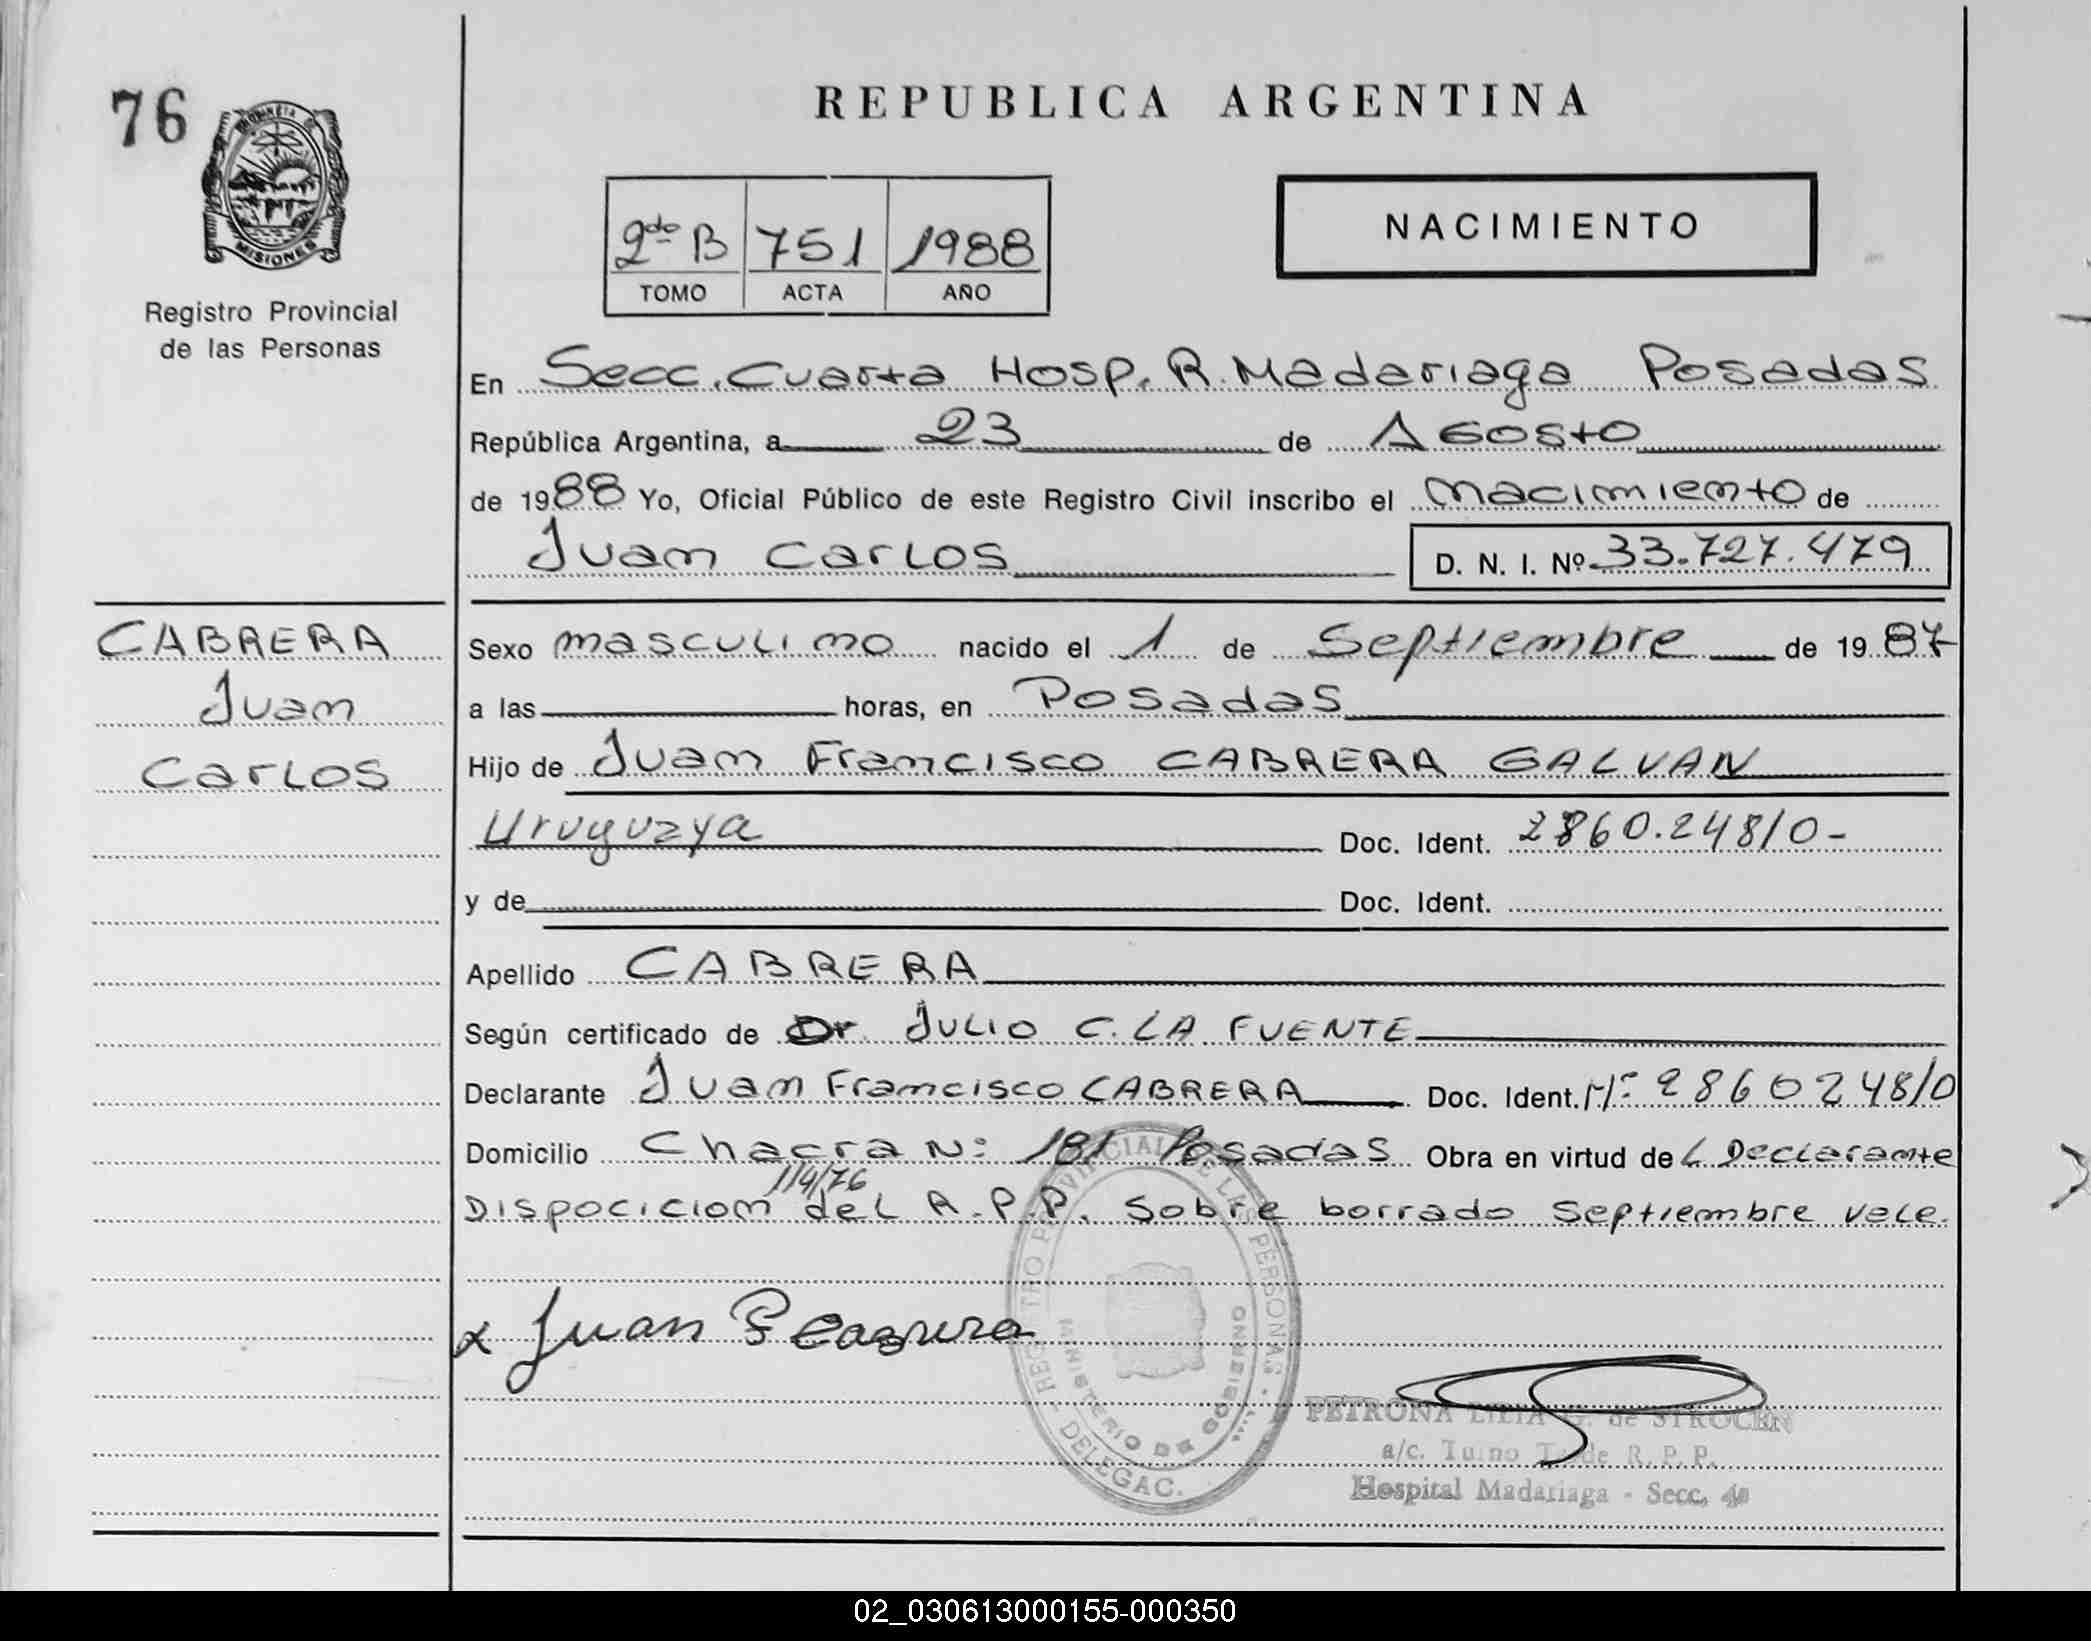 76
REPUBLICA ARGENTINA
PROVINCIA DE
MISIONES
Registro Provincial
de las Personas
2do B 751 1988
TOMO ACTA AÑO
NACIMIENTO
En Secc. Cuarta Hosp. R. Madariaga Posadas
República Argentina, a 23 de Agosto
de 1988 Yo, Oficial Público de este Registro Civil inscribo el nacimiento de
Juan Carlos D. N. I. Nº 33.727.479
CABRERA
Juan
Carlos
Sexo masculino nacido el 1 de Septiembre de 1987
a las horas, en Posadas
Hijo de Juan Francisco CABRERA GALVAN
Uruguaya Doc. Ident. 2860.248/0-
y de Doc. Ident.
Apellido CABRERA
Según certificado de Dr. JULIO C. LA FUENTE
Declarante Juan Francisco CABRERA Doc. Ident. Nº 2860248/0
Domicilio Chacra Nº 181 Posadas Obra en virtud de L Declarante
114/76
Disposicion del R.P.P. Sobre borrado Septiembre vale.
x Juan F Cabrera
REGISTRO PROVINCIAL DE LAS PERSONAS - DELEGAC.
MINISTERIO DE GOBIERNO
PETRONA LILIA G. de STROCEN
a/c. Turno Tarde R. P. P.
Hospital Madariaga - Secc. 4a
02_030613000155-000350